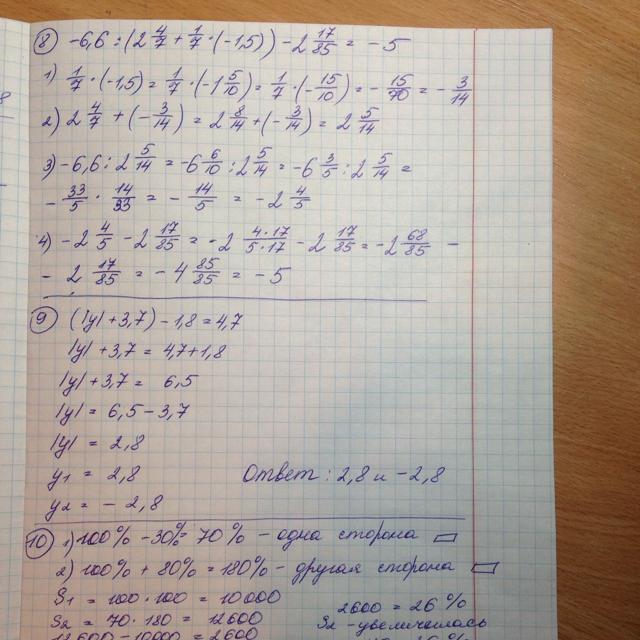 8 -6,6 : (2 4/7 + 1/7 · (-1,5)) - 2 17/85 = -5
1) 1/7 · (-1,5) = 1/7 · (-1 5/10) = 1/7 · (-15/10) = -15/70 = -3/14
2) 2 4/7 + (-3/14) = 2 8/14 + (-3/14) = 2 5/14
3) -6,6 : 2 5/14 = -6 6/10 : 2 5/14 = -6 3/5 : 2 5/14 =
- 33/5 · 14/33 = -14/5 = -2 4/5
4) -2 4/5 - 2 17/85 = -2 4·17/5·17 - 2 17/85 = -2 68/85 -
- 2 17/85 = -4 85/85 = -5
9 (|y| + 3,7) - 1,8 = 4,7
|y| + 3,7 = 4,7 + 1,8
|y| + 3,7 = 6,5
|y| = 6,5 - 3,7
|y| = 2,8
y1 = 2,8 Ответ: 2,8 и -2,8
y2 = -2,8
10 1) 100% - 30% = 70% - одна сторона
2) 100% + 80% = 180% - другая сторона
S1 = 100 · 100 = 10000 2600 = 26%
S2 = 70 · 180 = 12600 S2 - увеличилась
12600 - 10000 = 2600